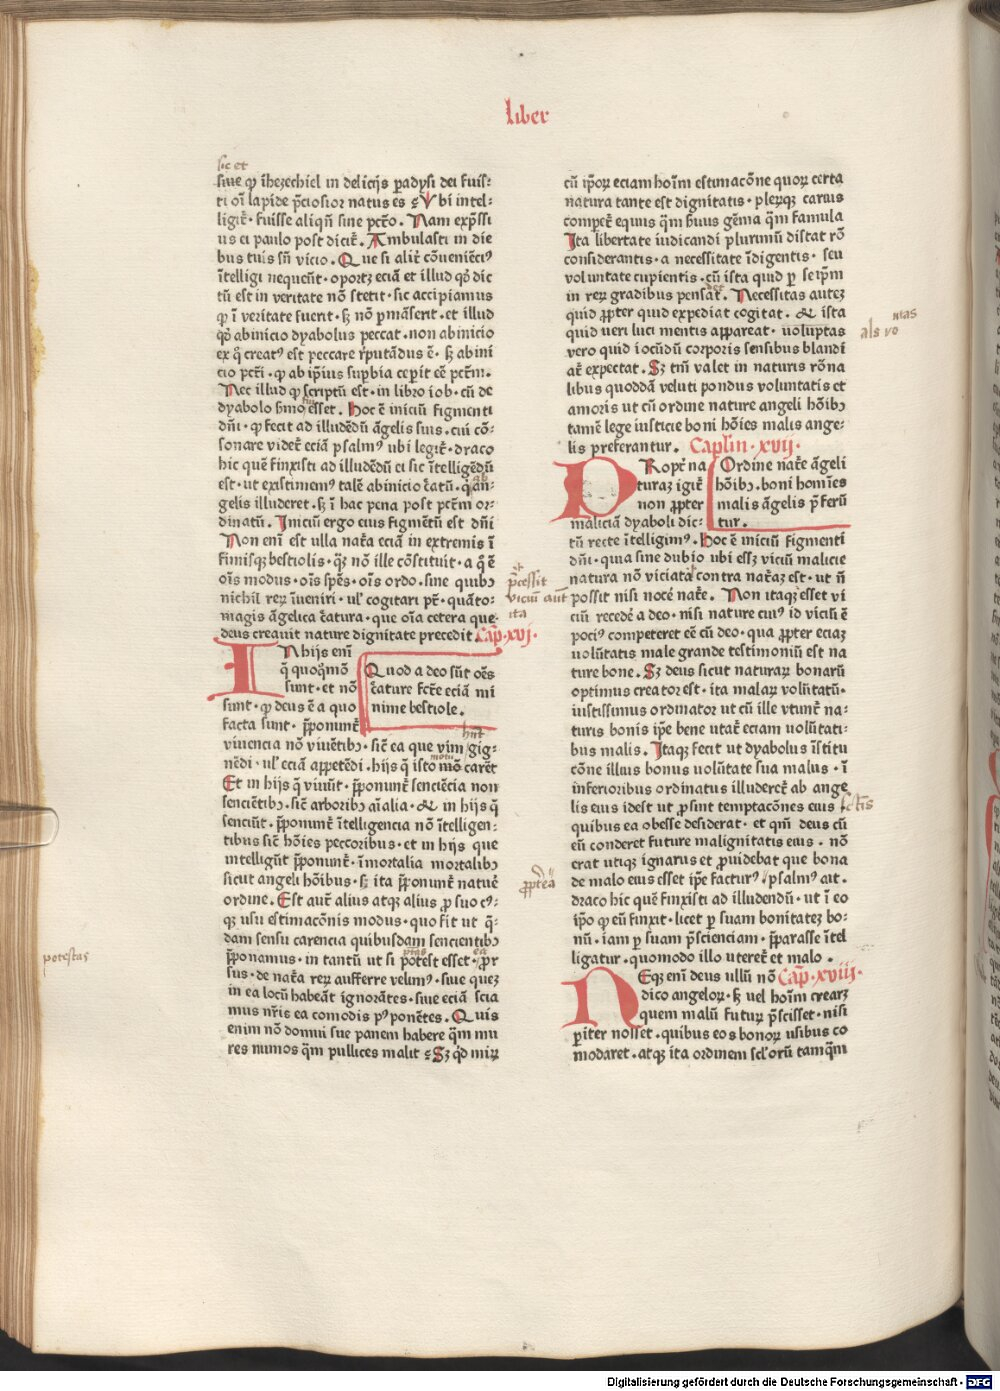 liber
sic et
siue ꝙ ihezechiel in delicijs padysi dei fuis⸗
ti oī lapide p̄ciosior natus es ⁊ Vbi intel⸗
ligit̄· fuisse aliqn̄ sine pctō. Nam exp̄ssi
us ei paulo post dicit̄. Ambulasti in die
bus tuis sn̄ vicio. Que si alit̄ cōueniēciꝰ
ītelligi nequeūt· oportꝫ eciā et illud qđ dic
tū est in veritate nō stetit· sic accipiamus
ꝙ ī veritate fuerit· sꝫ nō pmāserit· et illud
qđ abinicio dyabolus peccat· non abinicio
ex q̄ creatꝰ est peccare rputādus ē· sꝫ abini
cio pctī· ꝙ ab ipīus supbia cepit eē pctm̄.
Nec illud ꝙ scriptū est· in libro iob· cū de
dyabolo hmō esset. Hoc ē iniciū figmenti
dn̄i· ꝙ fecit ad illudēdū āgelis suis· cui cō⸗
sonare videt̄ eciā psalmꝰ ubi legit̄· draco
hic quē finxisti ad illudēdū ei sic ītelligēdū
est· ut existimemꝰ talē abinicio c̄atū· q̄ an⸗
ab
gelis illuderet· sꝫ ī hac pena post pctm̄ or⸗
dinatū. Iniciū ergo eius figmētū est dn̄i
Non enī est ulla nat̄a eciā in extremis ī
fimisqꝫ bestiolis· q̄ꝫ nō ille cōstituit· a q̄ ē
oīs modus· oīs spēs· oīs ordo· sine quibꝫ
nichil reꝝ īueniri· ul' cogitari pt̄· quāto⸗
magis āgelica c̄atura· que oīa cetera que
deus creauit nature dignitate precedit Cap̄·xvj·
IN hijs enī
q̄ quoqͦmō
sunt· et nō
sunt· ꝙ deus ē a quo
facta sunt· p̄ponunt̄
Quod a deo sūt oēs
c̄ature fcē eciā mi
nime bestiole.
viuencia nō viuētibꝫ· sic̄ ea que vim gig⸗
nēdi· ul' eciā appetēdi· hijs q̄ isto mō carēt
Et in hijs q̄ viuūt· p̄ponunt̄ senciēcia non
senciētibꝫ· sic̄ arboribꝫ aīalia· & in hijs q̄
senciūt· p̄ponunt̄ ītelligencia nō ītelligen⸗
tibus sic̄ hōies peccoribus· et in hijs que
intelligūt p̄ponunt̄· īmortalia mortalibꝫ
sicut angeli hōibus· sꝫ ita p̄ponunt̄ natuē
ordine. Est aut̄ alius atqꝫ alius ꝓ suo cꝰ⸗
qꝫ usu estimacōnis modus· quo fit ut q̄⸗
dam sensu carencia quibusdam sencientibꝫ
p̄ponamus· in tantū ut si potest esset· ꝓr
sus· de nat̄a reꝝ aufferre velimꝰ· siue queꝫ
in ea locū habeāt ignorātes· siue eciā scia
mus nr̄is ea comodis pꝰponētes. Quis
enim nō domui sue panem habere q̄m mu
res numos q̄m pullices malit ⁊ Sꝫ qđ miꝝ
potestas
p̄cessit
vicium aut
ita
ꝓpterea
cū ipōꝝ eciam hoīm estimacōne quoꝝ certa
natura tante est dignitatis· plerūqꝫ carius
compet̄ equus q̄m huius gēma q̄m famula
Ita libertate iudicandi plurimū distat rō
considerantis· a necessitate īdigentis· seu
voluntate cupientis· cū ista quid p se ipīm
in reꝝ gradibus pensat. Necessitas auteꝫ
quid ꝓpter quid expediat cogitat. & ista
quid ueri luci mentis appareat· uoluptas
vero quid iocūdū corporis sensibus blandi
at̄ expectat. Sꝫ tm̄ valet in naturis rōna
libus quoddā veluti pondus voluntatis et
amoris ut cū ordine nature angeli hōibꝫ
tamē lege iusticie boni hōies malis ange⸗
lis preferantur. Cap̄lm·xvij·
PRopt̄ na
turaꝫ igit̄
non ꝓpter
maliciā dyaboli dic⸗
Ordine nat̄e āgeli
hōibꝫ· boni homīes
malis āgelis p̄ferū
tur.
tū recte ītelligimꝰ. Hoc ē iniciū figmenti
dn̄i· quia sine dubio ubi essꝫ viciū malicie
natura nō viciata contra nat̄aꝫ est· ut n̄
possit nisi nocē nat̄e. Non itaqꝫ esset vi
ciū recedē a deo· nisi nature cuiꝰ id viciū ē
pociꝰ competeret eē cū deo· qua ꝓpter eciaꝫ
uolūtatis male grande testimoniū est na
ture bone. Sꝫ deus sicut naturaꝝ bonarū
optimus creator est· ita malaꝝ volūtatū·
iustissimus ordinator ut cū ille vtunt̄ na⸗
turis bonis ipē bene utat̄ eciam uolūtati⸗
bus malis. Itaqꝫ fecit ut dyabolus īstitu
cōne illius bonus uolūtate sua malus· ī
inferioribus ordinatus illuderet̄ ab ange
lis eius idest ut ꝓsint temptacōnes eius
quibus ea obesse desiderat· et qm̄ deus cū
eū conderet future malignitatis eius· nō
erat utiqꝫ ignarus et ꝓuidebat que bona
de malo eius esset ipē facturꝰ· psalmꝰ ait·
draco hic quē finxisti ad illudendū· ut ī eo
ipō ꝙ eū finxit· licet p suam bonitateꝫ bo⸗
nū· iam p suam p̄scienciam· p̄parasse ītel
ligatur· quomodo illo uteret̄ et malo.
NEqꝫ enī deus ullū nō Cap̄·xviij·
dico angeloꝝ· sꝫ uel hoīm crearꝫ
quem malū futuꝝ p̄scisset· nisi
piter nosset· quibus eos bonoꝝ usibus co
modaret· atqꝫ ita ordinem scl'orū tamq̄m
Digitalisierung gefördert durch die Deutsche Forschungsgemeinschaft - DFG